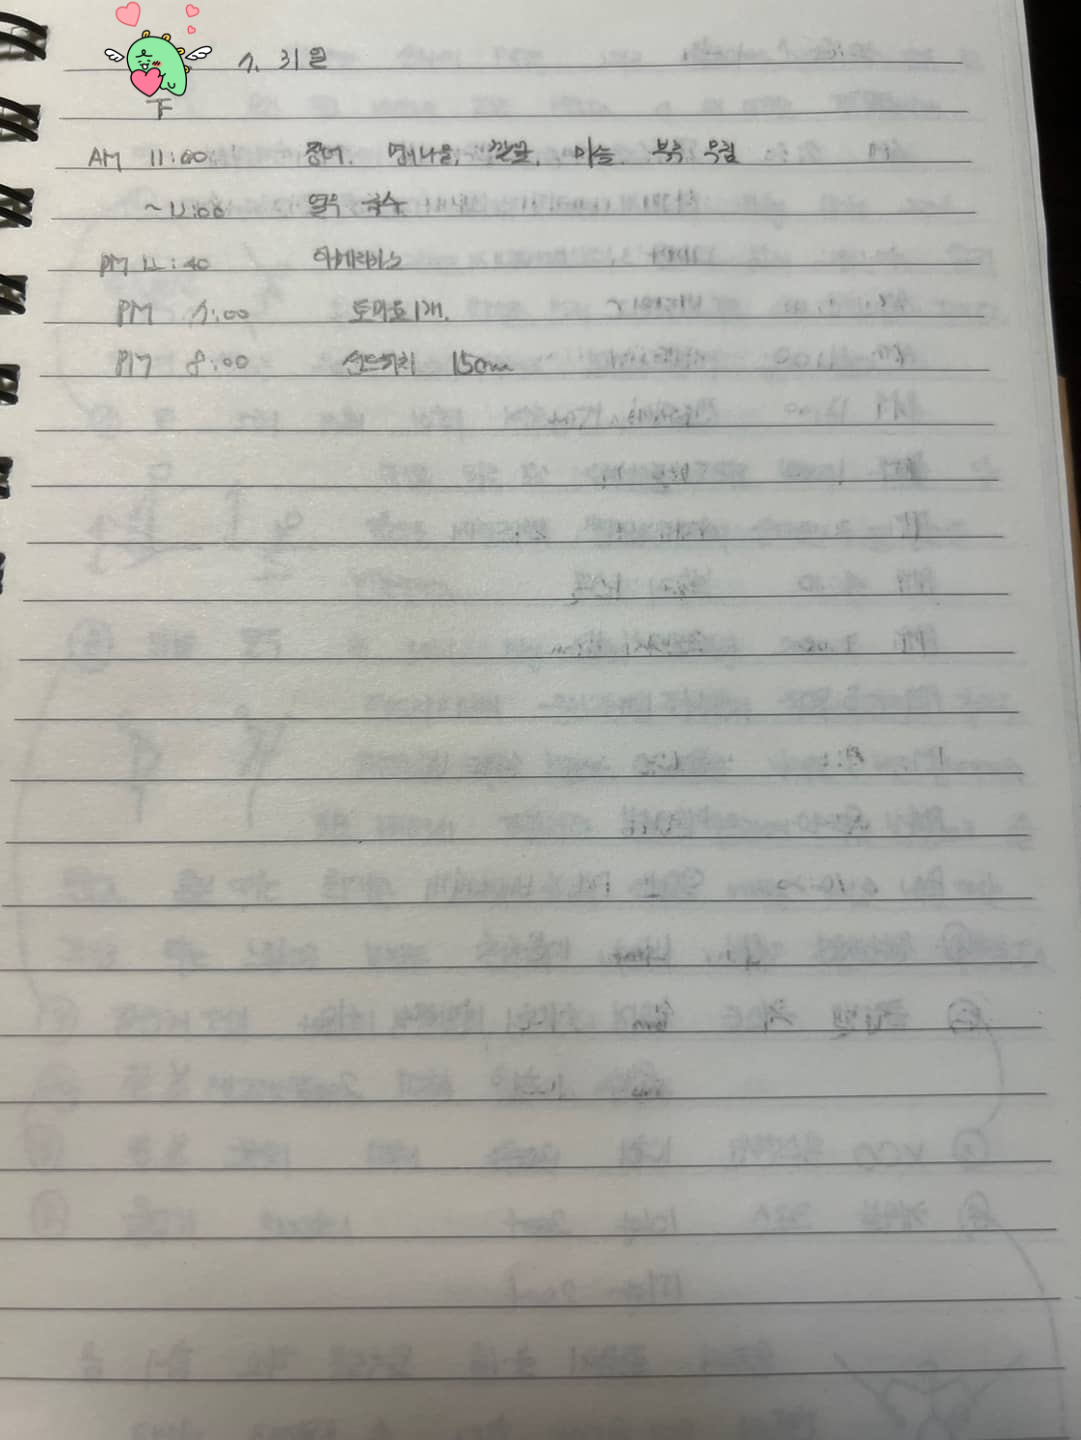 7. 31일
下
AM 11:00 장어. 명이나물, 깻잎, 마늘. 부추 무침
~12:00 열무 국수
PM 12:40 아메리카노
PM 7:00 토마토 1개.
PM 8:00 샌드위치 15cm